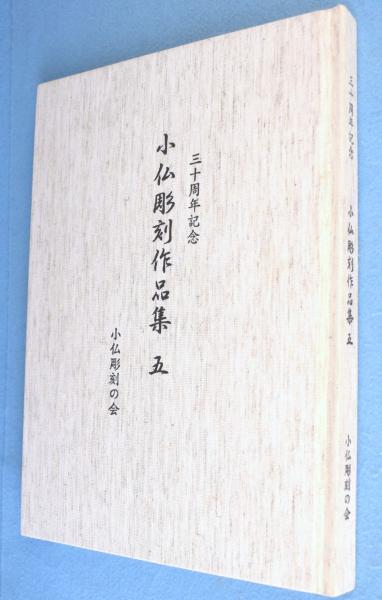 三十周年記念
小仏彫刻作品集 五
小仏彫刻の会
三十周年記念 小仏彫刻作品集 五 小仏彫刻の会